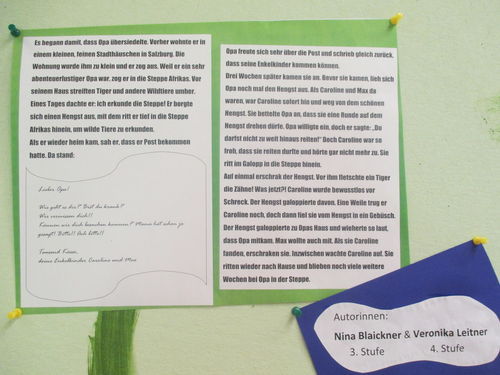 Es begann damit, dass Opa übersiedelte. Vorher wohnte er in
einem kleinen, feinen Stadthäuschen in Salzburg. Die
Wohnung wurde ihm zu klein und er zog aus. Weil er ein sehr
abenteuerlustiger Opa war, zog er in die Steppe Afrikas. Vor
seinem Haus streiften Tiger und andere Wildtiere umher.
Eines Tages dachte er: ich erkunde die Steppe! Er borgte
sich einen Hengst aus, mit dem ritt er tief in die Steppe
Afrikas hinein, um wilde Tiere zu erkunden.
Als er wieder heim kam, sah er, dass er Post bekommen
hatte. Da stand:
Lieber Opa!
Wie geht es dir? Bist du krank?
Wir vermissen dich!!
Können wir dich besuchen kommen? Mama hat schon ja
gesagt! Bitte!! Ach bitte!!
Tausend Küsse,
deine Enkelkinder Caroline und Max
Opa freute sich sehr über die Post und schrieb gleich zurück,
dass seine Enkelkinder kommen können.
Drei Wochen später kamen sie an. Bevor sie kamen, lieh sich
Opa noch mal den Hengst aus. Als Caroline und Max da
waren, war Caroline sofort hin und weg von dem schönen
Hengst. Sie bettelte Opa an, dass sie eine Runde auf dem
Hengst drehen dürfe. Opa willigte ein, doch er sagte: „Du
darfst nicht zu weit hinaus reiten!" Doch Caroline war so
froh, dass sie reiten durfte und hörte gar nicht mehr zu. Sie
ritt im Galopp in die Steppe hinein.
Auf einmal erschrak der Hengst. Vor ihm fletschte ein Tiger
die Zähne! Was jetzt?! Caroline wurde bewusstlos vor
Schreck. Der Hengst galoppierte davon. Eine Weile trug er
Caroline noch, doch dann fiel sie vom Hengst in ein Gebüsch.
Der Hengst galoppierte zu Opas Haus und wieherte so laut,
dass Opa mitkam. Max wollte auch mit. Als sie Caroline
fanden, erschraken sie. Inzwischen wachte Caroline auf. Sie
ritten wieder nach Hause und blieben noch viele weitere
Wochen bei Opa in der Steppe.
Autorinnen:
Nina Blaickner & Veronika Leitner
3. Stufe 4. Stufe